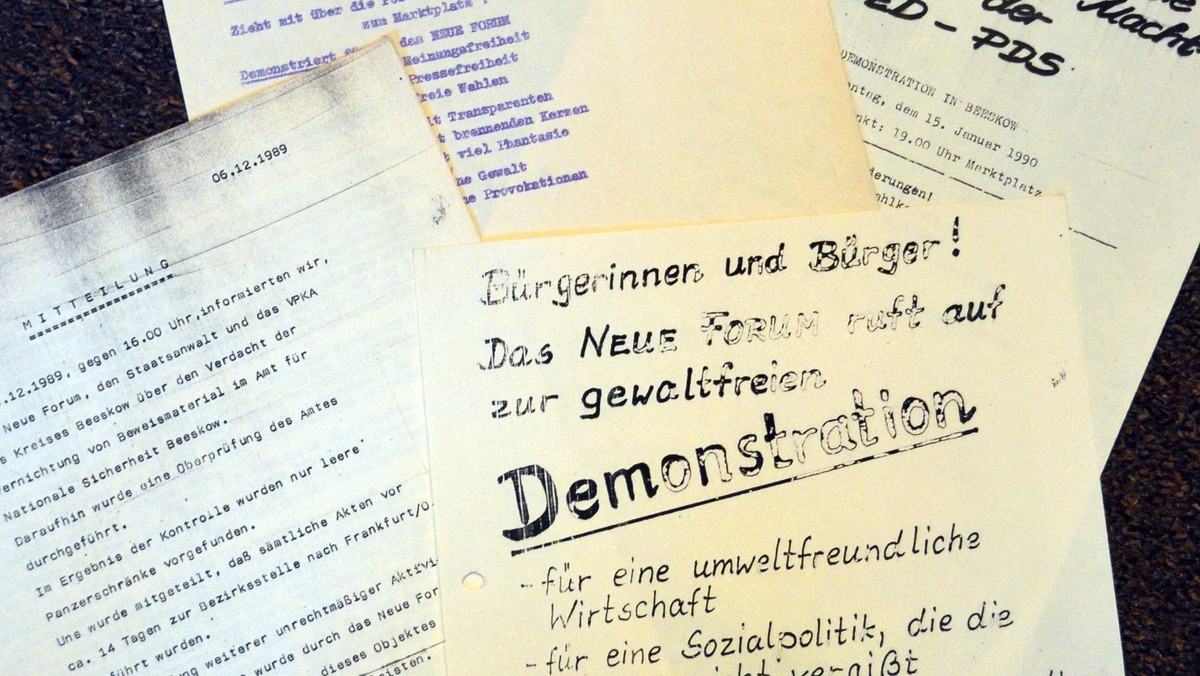 Zieht mit über die
zum Marktplatz
Demonstriert für das NEUE FORUM
Meinungsfreiheit
Pressefreiheit
freie Wahlen
Transparenten
brennenden Kerzen
viel Phantasie
Gewalt
Provokationen
Macht
der
SED - PDS
DEMONSTRATION IN BEESKOW
dem 15. Januar 1990
19.00 Uhr Marktplatz
06.12.1989
MITTEILUNG
.12.1989, gegen 16.00 Uhr, informierten wir,
Neue Forum, den Staatsanwalt und das VPKA
Kreises Beeskow über den Verdacht der
Vernichtung von Beweismaterial im Amt für
Nationale Sicherheit Beeskow.
Daraufhin wurde eine Oberprüfung des Amtes
durchgeführt.
Im Ergebnis der Kontrolle wurden nur leere
Panzerschränke vorgefunden.
Uns wurde mitgeteilt, daß sämtliche Akten vor
ca. 14 Tagen zur Bezirksstelle nach Frankfurt/O.
führt wurden.
weiterer unrechtmäßiger Aktivi
wurde durch das Neue For
dieses Objektes
Bürgerinnen und Bürger!
Das NEUE FORUM ruft auf
zur gewaltfreien
Demonstration
- für eine umweltfreundliche
Wirtschaft
- für eine Sozialpolitik, die die
vergißt